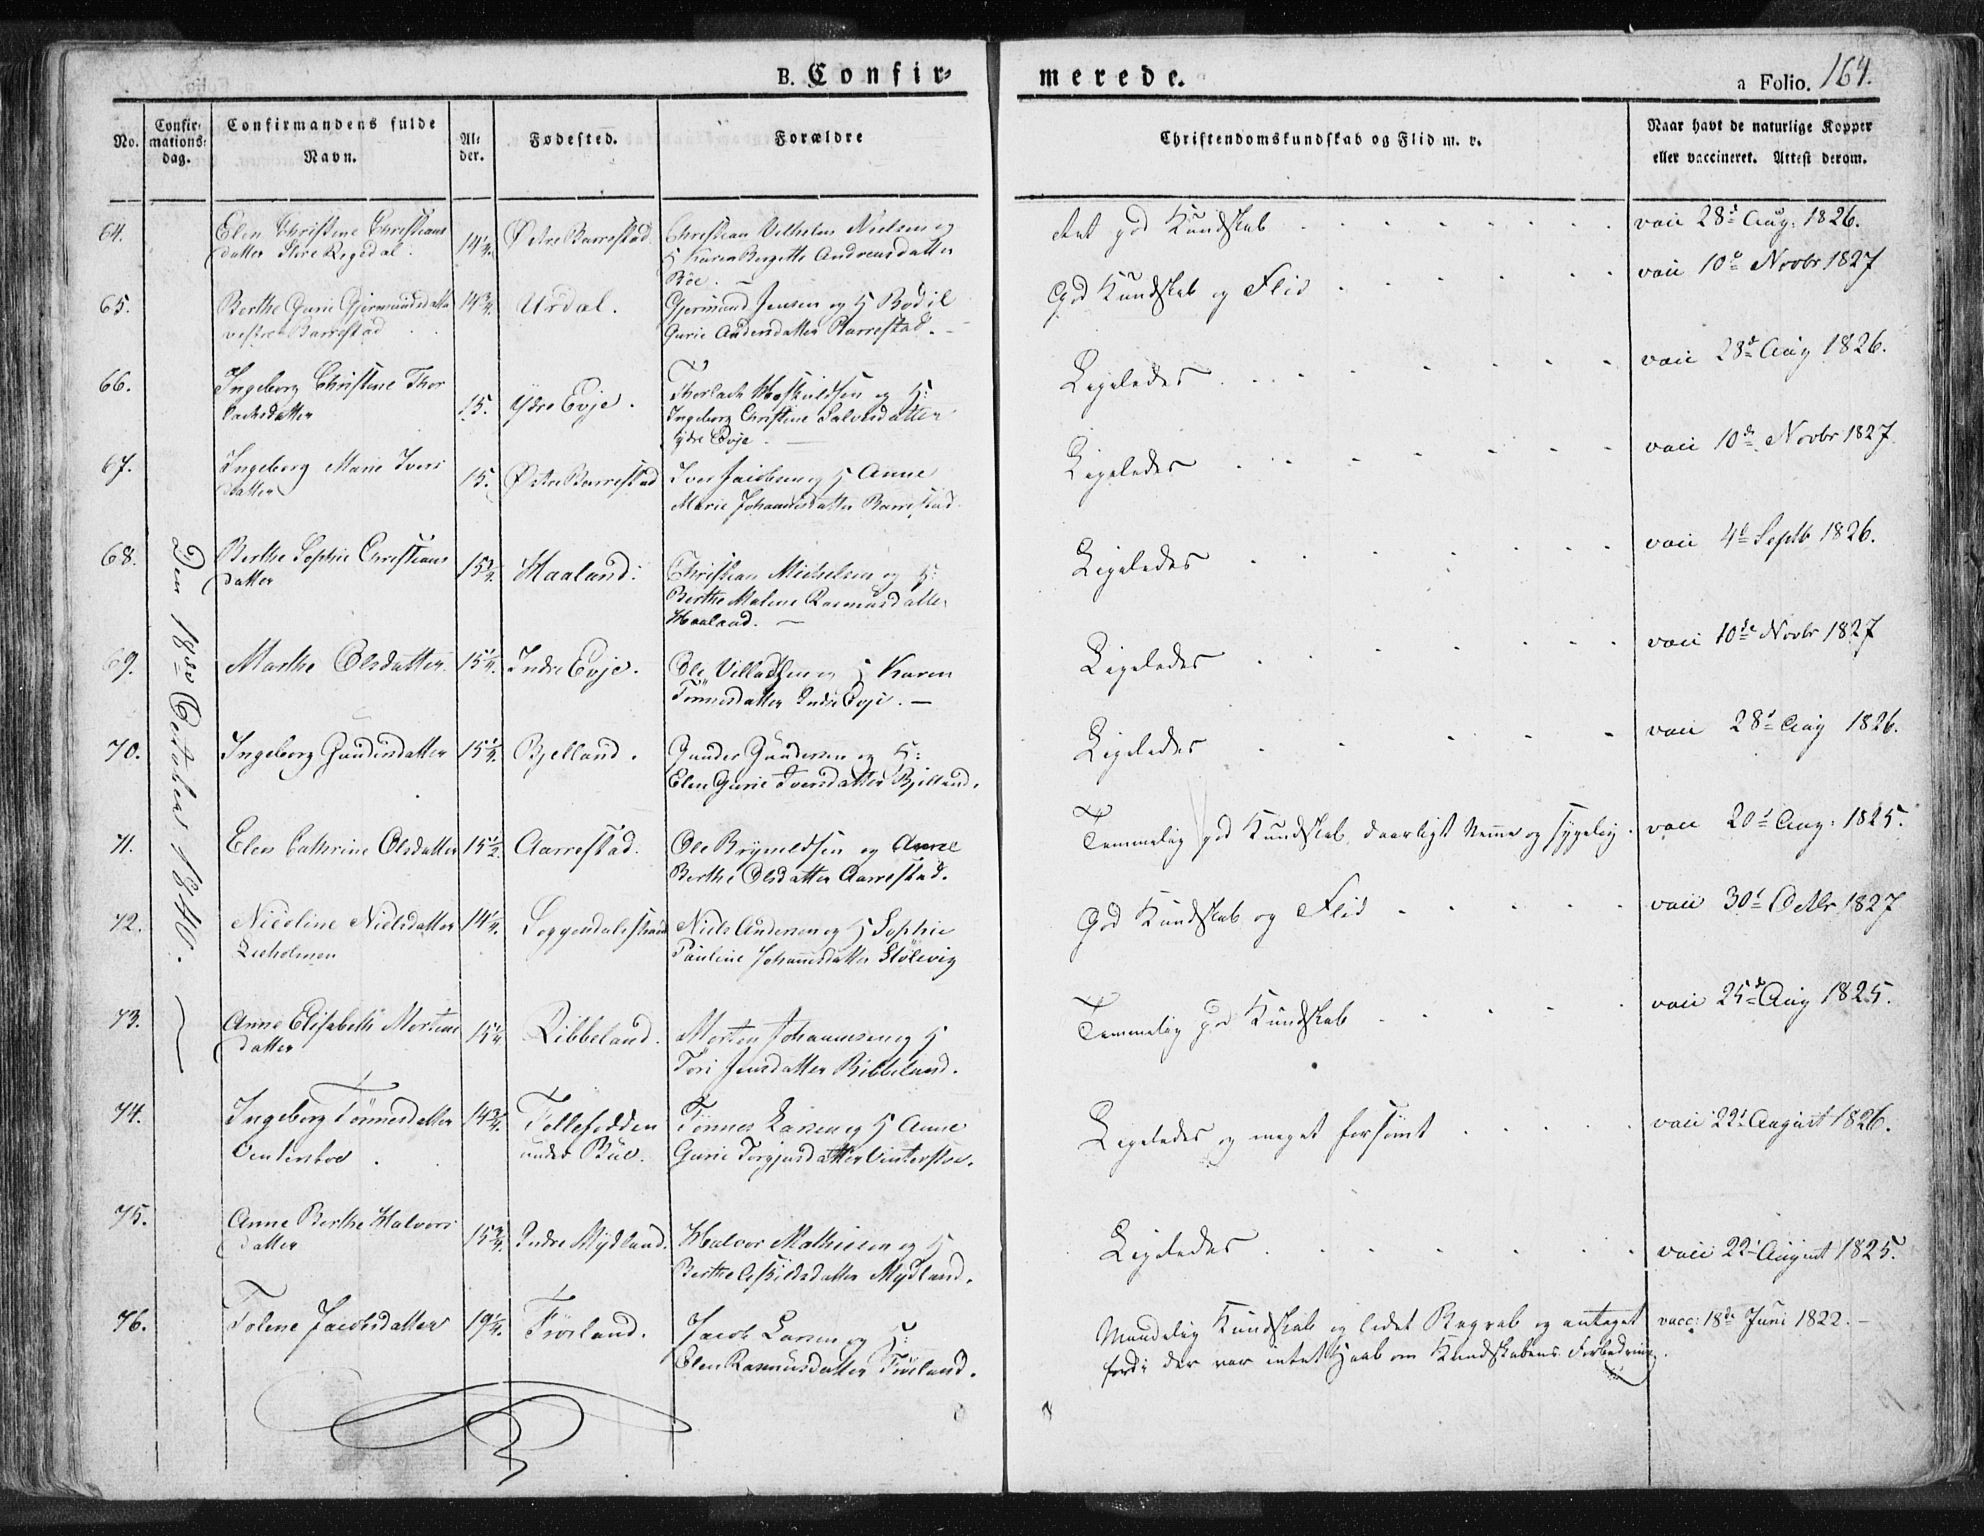 B. Confir-
merede.
a Folio. 164.
No.
Confir-
mations-
dag.
Confirmandens fulde
Navn.
Al-
der.
Fødested.
Forældre
Christendomskundskab og Flid m. v.
Naar havt de naturlige Kopper
eller vaccineret. Attest derom.
Den 18de October 1840.
64. Elen Christine Christians 14¼. Østre Barrestad. Christian Vilhelm Nielsen og
datter Store Regedal. H Karen Bergitte Andreasdatter
Böe.
God Kundskab vacc 28d Aug: 1826.
65. Berthe Gurie Gjermundsdatter 14¾. Urdal. Gjermund Jensen og H Bodil
vestre Barrestad Gurie Andersdatter Barrestad.
God Kundskab og Flid vacc 10d Novbr 1827
66. Ingeborg Christine Thor 15. Ydre Evje. Thorlack Hoskuldsen og H:
lacksdatter Ingeborg Christine Salvesdatter
ydre Evje.
Ligeledes vacc 28d Aug 1826.
67. Ingeborg Marie Ivers 15. Østre Barrestad Iver Jacobsen og H Anne
datter Marie Johannesdatter Barrestad.
Ligeledes vacc 10de Novbr 1827
68. Berthe Sophie Christians Haaland. Christian Michelsen og H:
datter Berthe Malene Rasmusdatter
Haaland.
Ligeledes vacc 4d Septb 1826.
69. Marthe Olsdatter. 15¼. Indre Evje. Ole Villadsen og H Karen
Tönnesdatter Indre Evje.
Ligeledes vacc 10de Novbr 1827
70. Ingeborg Gundersdatter 15¼. Bjelland. Gunder Gundersen og H:
Elen Gurie Iversdatter Bjelland.
Ligeledes vacc 28d Aug 1826.
71. Elen Cathrine Olsdatter 15½. Aarrestad. Ole Brynildsen og Anne
Berthe Olsdatter Aarrestad.
Temmelig god Kundskab, daarligt Nemme og sygelig. vacc 20d Aug: 1825.
72. Nicoline Nielsdatter 14¼. Soggendalsstrand Niels Andersen og H Sophie
Lieholmen Pauline Johannesdatter Stölevig
God Kundskab og Flid vacc 30d Octbr 1827
73. Anne Elisabeth Mortens 15¼ Ribbeland. Morten Johannesen og H
datter Tori Jensdatter Ribbeland.
Temmelig god Kundskab vacc 25de Aug 1825.
74. Ingeborg Tönnesdatter 14¾. Tellefodden Tönnes Larsen og H Anne
Vinterstöe. under Böe. Gurie Torgjusdatter Vinterstöe.
Ligeledes og meget forsömt vacc 22d August 1826.
75. Anne Berthe Halvors 15¾. Indre Mydland. Halvor Mathiesen og H
datter Berthe Eskildsdatter Mydland.
Ligeledes vacc 22d August 1825.
76. Tolene Jacobsdatter 19¼. Frörland. Jacob Larsen og H:
Elen Rasmusdatter Frörland.
Maadelig Kundskab og lidet Begreb og antaget vacc: 18de Juni 1822.
fordi der var intet Haab om Kundskabens Forbedring.